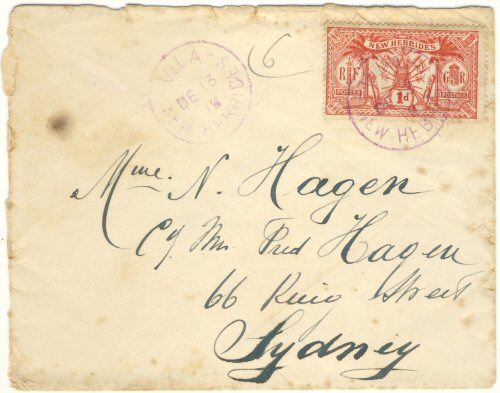 VILA
DE 13
NEW HEBRIDES
6
NEW HEBRIDES
R F
G R
POSTES
1d
POSTAGE
NEW HEB
Mme. N. Hagen
c/ Mr Fred Hagen
66 King Street
Sydney